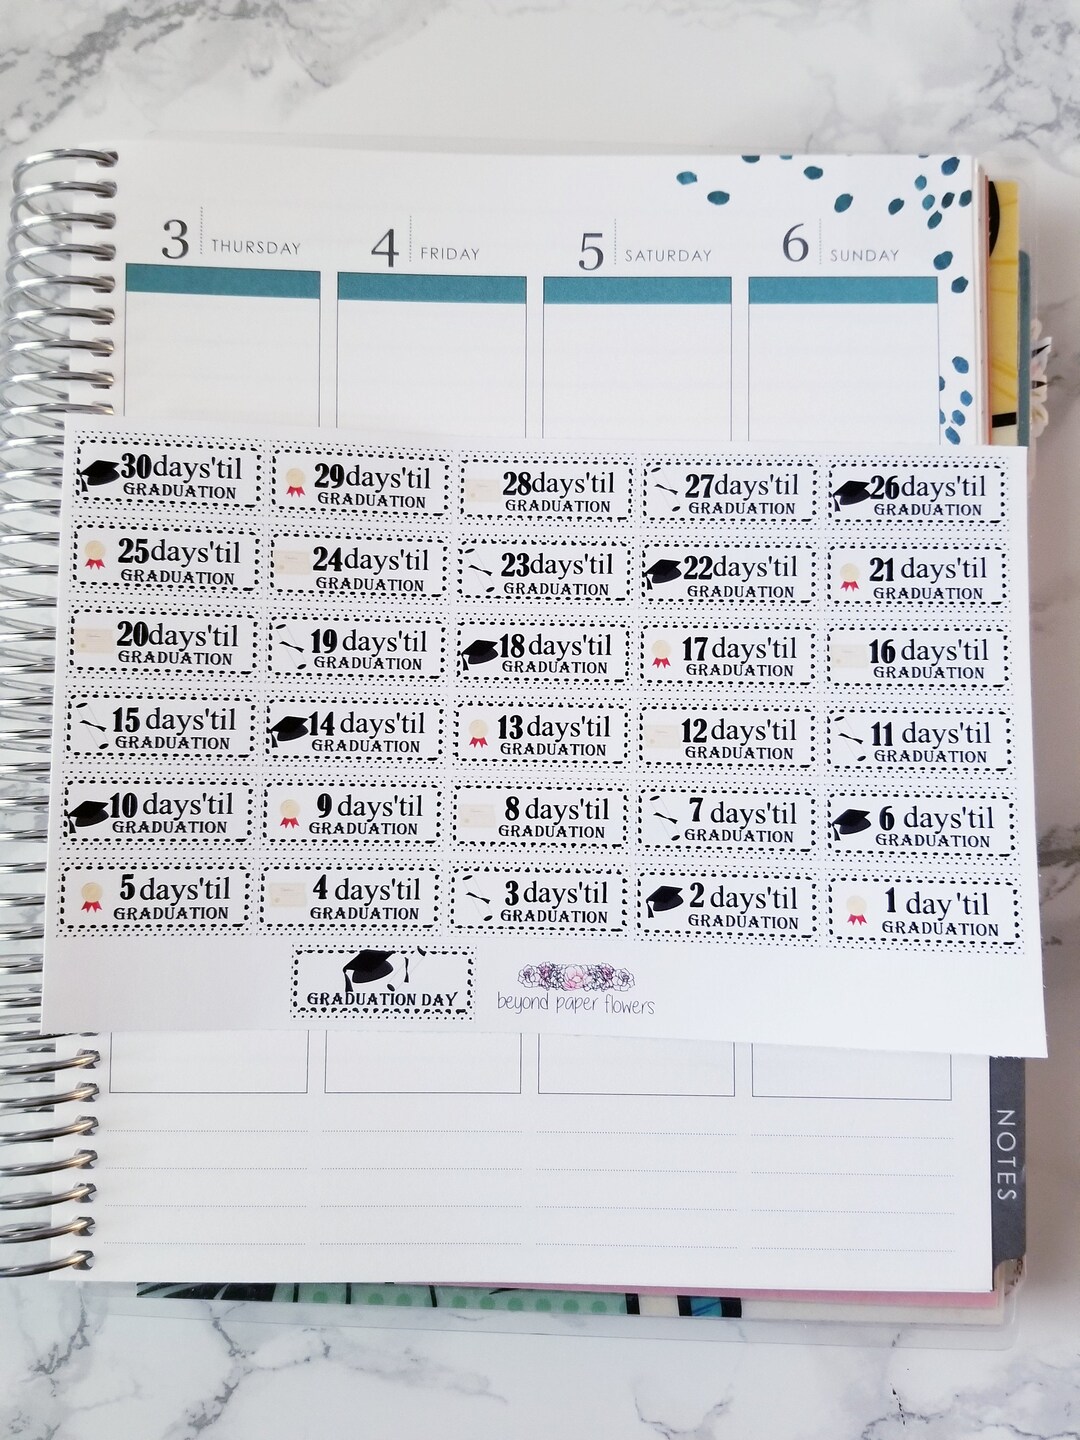 3 THURSDAY
4 FRIDAY
5 SATURDAY
6 SUNDAY
30days'til
GRADUATION
29days'til
GRADUATION
28days'til
GRADUATION
27days'til
GRADUATION
26days'til
GRADUATION
25days'til
GRADUATION
24days'til
GRADUATION
23days'til
GRADUATION
22days'til
GRADUATION
21 days'til
GRADUATION
20days'til
GRADUATION
19 days'til
GRADUATION
18days'til
GRADUATION
17days'til
GRADUATION
16 days'til
GRADUATION
15 days'til
GRADUATION
14 days'til
GRADUATION
13 days'til
GRADUATION
12 days'til
GRADUATION
11 days'til
GRADUATION
10 days'til
GRADUATION
9 days'til
GRADUATION
8 days'til
GRADUATION
7 days'til
GRADUATION
6 days'til
GRADUATION
5 days'til
GRADUATION
4 days'til
GRADUATION
3 days'til
GRADUATION
2 days'til
GRADUATION
1 day 'til
GRADUATION
GRADUATION DAY
beyond paper flowers
NOTES